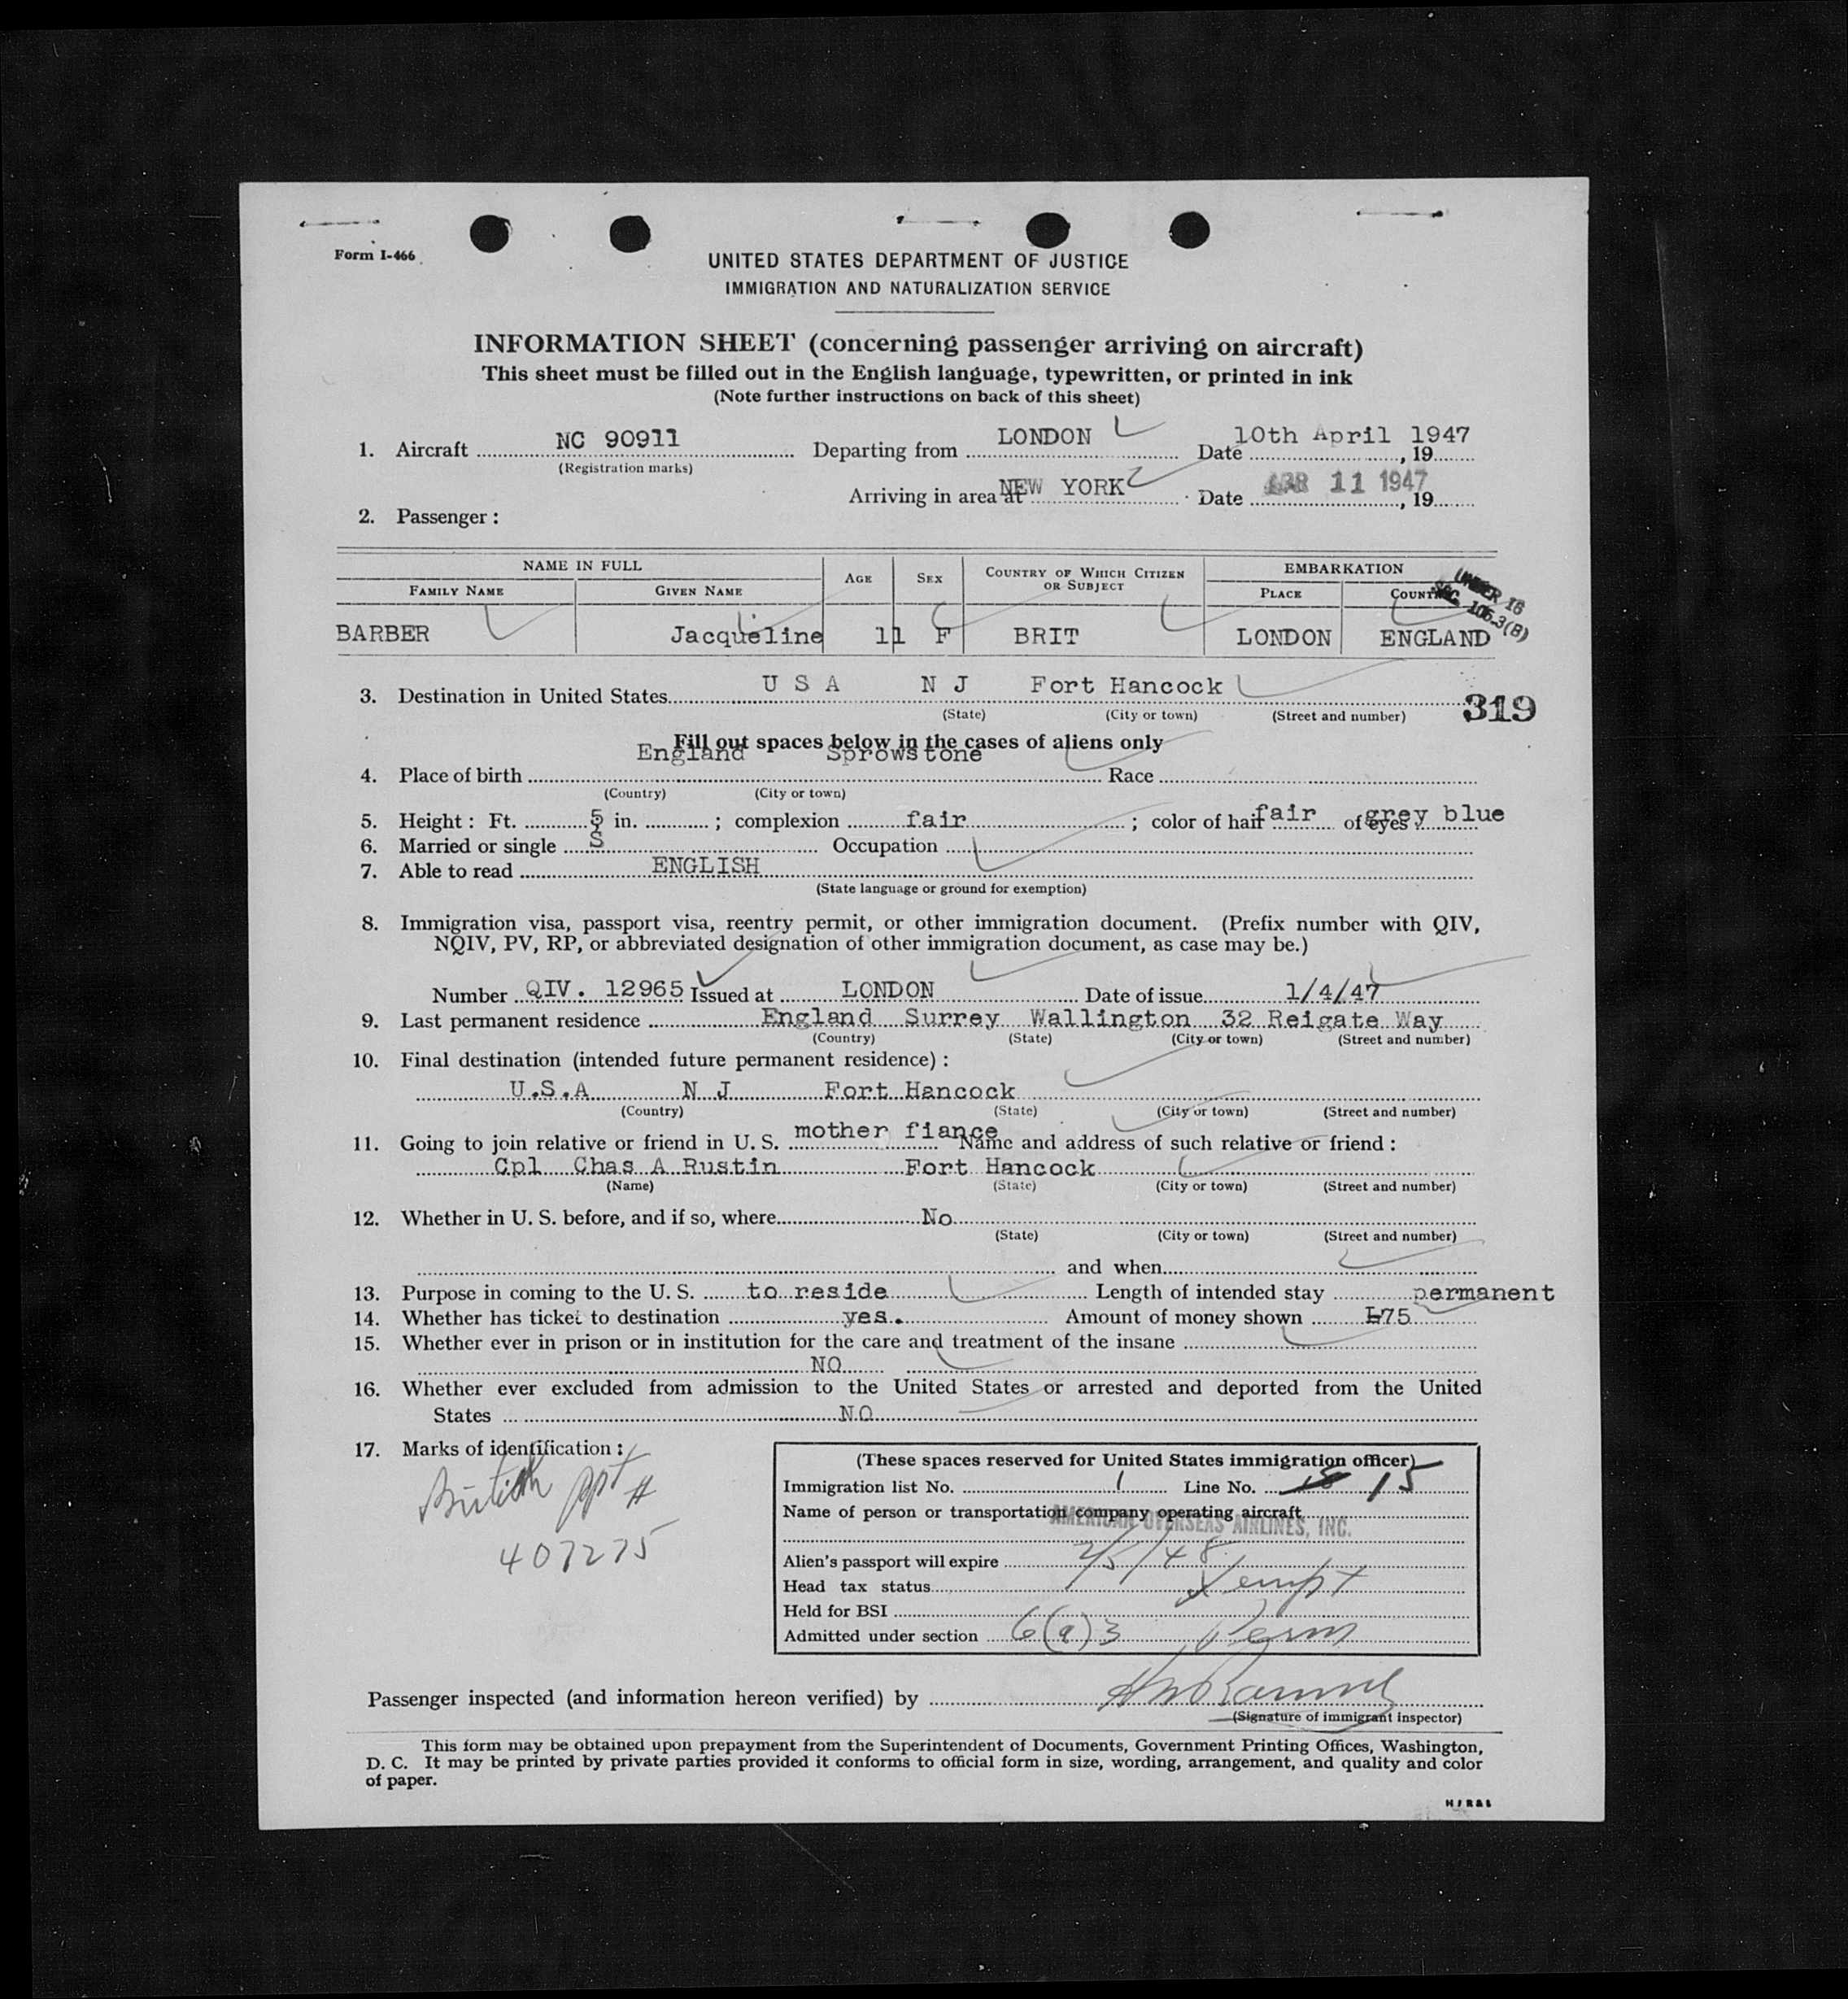 Form I-466
UNITED STATES DEPARTMENT OF JUSTICE
IMMIGRATION AND NATURALIZATION SERVICE
INFORMATION SHEET (concerning passenger arriving on aircraft)
This sheet must be filled out in the English language, typewritten, or printed in ink
(Note further instructions on back of this sheet)
1. Aircraft NC 90911 Departing from LONDON Date 10th April 1947, 19
(Registration marks)
Arriving in area at NEW YORK Date APR 11 1947, 19
2. Passenger:
NAME IN FULL AGE SEX COUNTRY OF WHICH CITIZEN OR SUBJECT EMBARKATION
FAMILY NAME GIVEN NAME PLACE COUNTRY
UNDER 16
SEC. 105.3(B)
BARBER Jacqueline 11 F BRIT LONDON ENGLAND
3. Destination in United States U S A N J Fort Hancock
(State) (City or town) (Street and number)
319
Fill out spaces below in the cases of aliens only
4. Place of birth England Sprowstone Race
(Country) (City or town)
5. Height: Ft. 5 in. ; complexion fair ; color of hair fair of eyes grey blue
6. Married or single S Occupation
7. Able to read ENGLISH
(State language or ground for exemption)
8. Immigration visa, passport visa, reentry permit, or other immigration document. (Prefix number with QIV,
NQIV, PV, RP, or abbreviated designation of other immigration document, as case may be.)
Number QIV. 12965 Issued at LONDON Date of issue 1/4/47
9. Last permanent residence England Surrey Wallington 32 Reigate Way
(Country) (State) (City or town) (Street and number)
10. Final destination (intended future permanent residence):
U.S.A N J Fort Hancock
(Country) (State) (City or town) (Street and number)
11. Going to join relative or friend in U. S. mother fiance Name and address of such relative or friend:
Cpl Chas A Rustin Fort Hancock
(Name) (State) (City or town) (Street and number)
12. Whether in U. S. before, and if so, where No
(State) (City or town) (Street and number)
and when
13. Purpose in coming to the U. S. to reside Length of intended stay permanent
14. Whether has ticket to destination yes. Amount of money shown £75
15. Whether ever in prison or in institution for the care and treatment of the insane
NO
16. Whether ever excluded from admission to the United States or arrested and deported from the United
States NO
17. Marks of identification:
British ppt #
407275
(These spaces reserved for United States immigration officer)
Immigration list No. 1 Line No. 15
Name of person or transportation company operating aircraft
AMERICAN OVERSEAS AIRLINES, INC.
Alien's passport will expire 2/5/48
Head tax status Exempt
Held for BSI
Admitted under section 6(a)3 Perm
Passenger inspected (and information hereon verified) by
(Signature of immigrant inspector)
This form may be obtained upon prepayment from the Superintendent of Documents, Government Printing Offices, Washington,
D. C. It may be printed by private parties provided it conforms to official form in size, wording, arrangement, and quality and color
of paper.